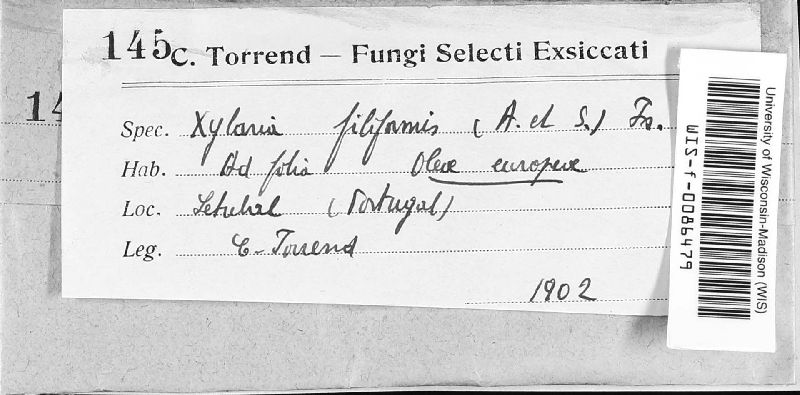 145 C. Torrend — Fungi Selecti Exsiccati
14
Spec. Xylaria filiformis (A. et S.) Fr.
Hab. Ad folia Oleæ europeæ
Loc. Setubal (Portugal)
Leg. C. Torrend
1902
University of Wisconsin-Madison (WIS)
WIS-f-0086479